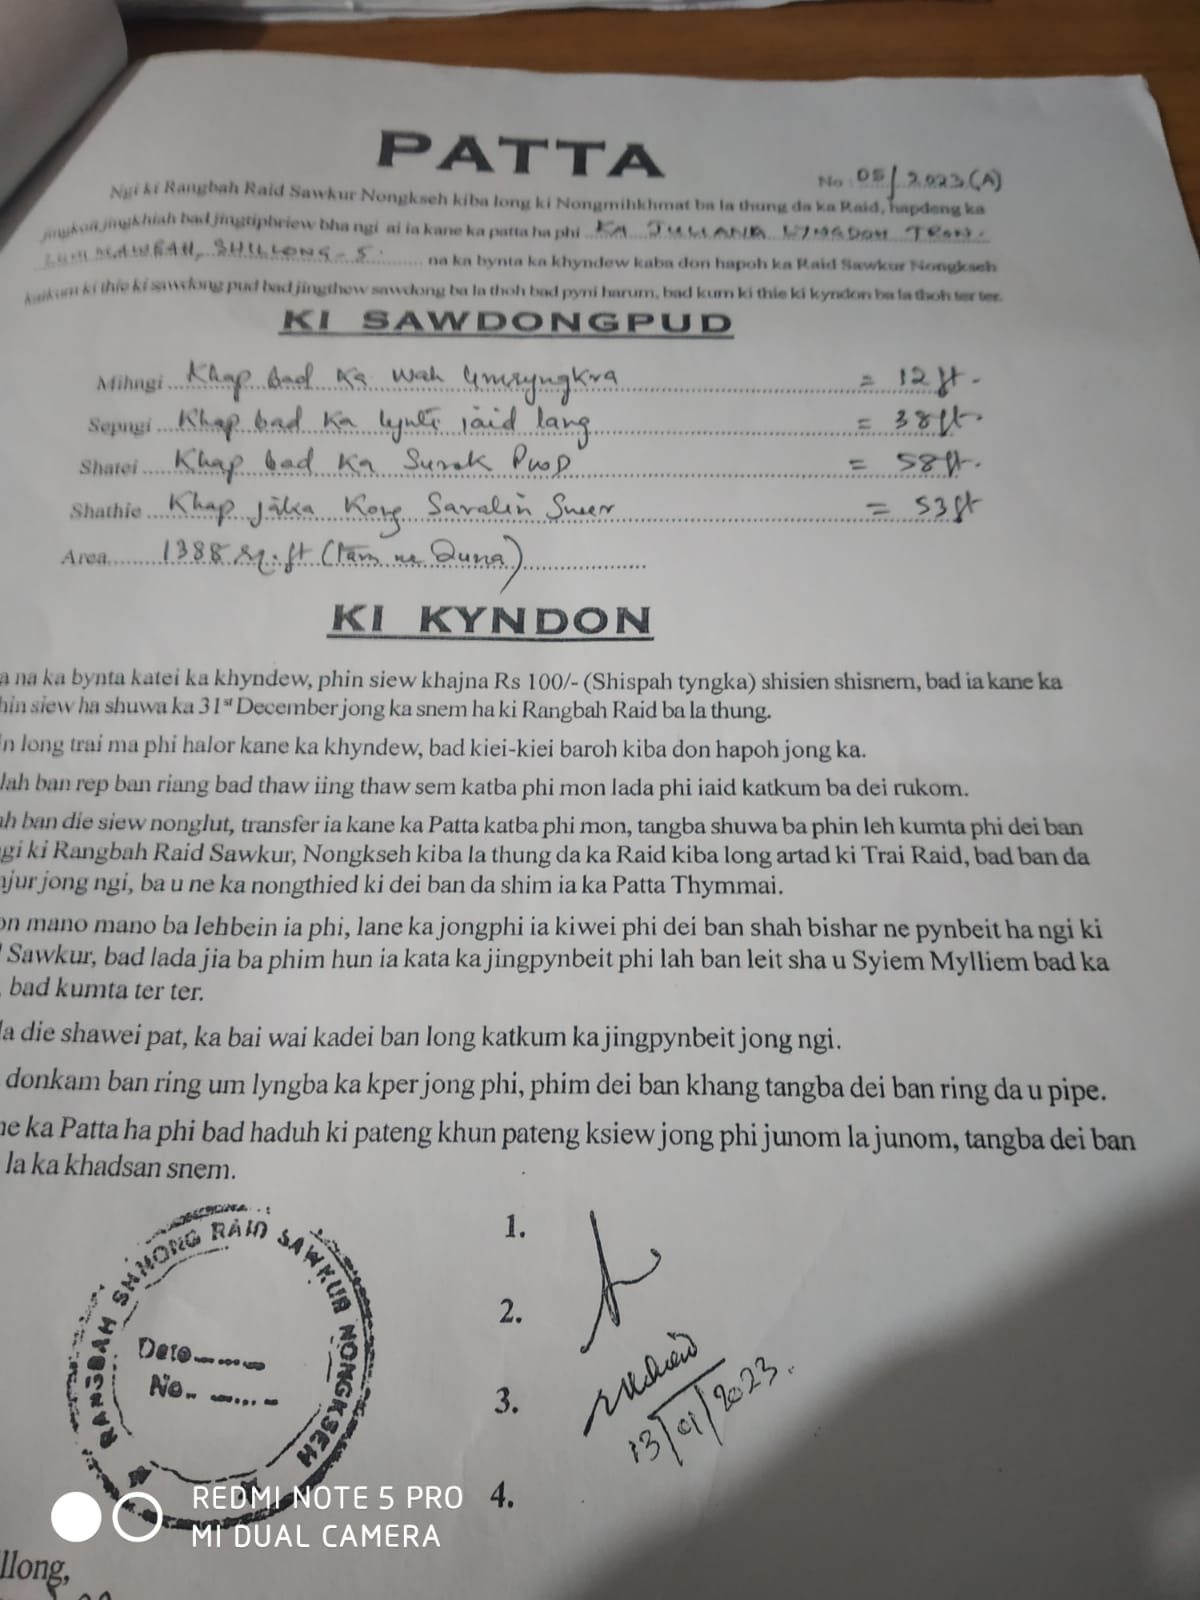 PATTA
No 05/2023(A)
Ngi ki Rangbah Raid Sawkur Nongkseh kiba long ki Nongmihkhmat ba la thung da ka Raid, hapdeng ka
jingkoit jingkhiah bad jingtipbriew bha ngi ai ia kane ka patta ha phi KA JULIANA LYNGDOH TRON.
MAWBAH, SHILLONG-5. na ka bynta ka khyndew kaba don hapoh ka Raid Sawkur Nongkseh
katkum ki thie ki sawdong pud bad jingthew sawdong ba la thoh bad pyni harum, bad kum ki thie ki kyndon ba la thoh ter ter.
KI SAWDONGPUD
Mihngi Khap bad Ka Wah Umsyngkra = 12 ft.
Sepngi Khap bad Ka lynti iaid lang = 38 ft.
Shatei Khap bad Ka Surok PWD = 58 ft.
Shathie Khap jaka Kong Saralin Sneer = 53 ft
Area 1388 sq. ft (tam ne Duna)
KI KYNDON
a na ka bynta katei ka khyndew, phin siew khajna Rs 100/- (Shispah tyngka) shisien shisnem, bad ia kane ka
hin siew ha shuwa ka 31st December jong ka snem ha ki Rangbah Raid ba la thung.
n long trai ma phi halor kane ka khyndew, bad kiei-kiei baroh kiba don hapoh jong ka.
lah ban rep ban riang bad thaw iing thaw sem katba phi mon lada phi iaid katkum ba dei rukom.
ah ban die siew nonglut, transfer ia kane ka Patta katba phi mon, tangba shuwa ba phin leh kumta phi dei ban
gi ki Rangbah Raid Sawkur, Nongkseh kiba la thung da ka Raid kiba long artad ki Trai Raid, bad ban da
njur jong ngi, ba u ne ka nongthied ki dei ban da shim ia ka Patta Thymmai.
on mano mano ba lehbein ia phi, lane ka jongphi ia kiwei phi dei ban shah bishar ne pynbeit ha ngi ki
Sawkur, bad lada jia ba phim hun ia kata ka jingpynbeit phi lah ban leit sha u Syiem Mylliem bad ka
, bad kumta ter ter.
da die shawei pat, ka bai wai kadei ban long katkum ka jingpynbeit jong ngi.
donkam ban ring um lyngba ka kper jong phi, phim dei ban khang tangba dei ban ring da u pipe.
ne ka Patta ha phi bad haduh ki pateng khun pateng ksiew jong phi junom la junom, tangba dei ban
la ka khadsan snem.
1.
2.
3.
13/01/2023.
4.
RANGBAH SHNONG RAID SAWKUR NONGKSEH
Date
No.
REDMI NOTE 5 PRO
MI DUAL CAMERA
llong,